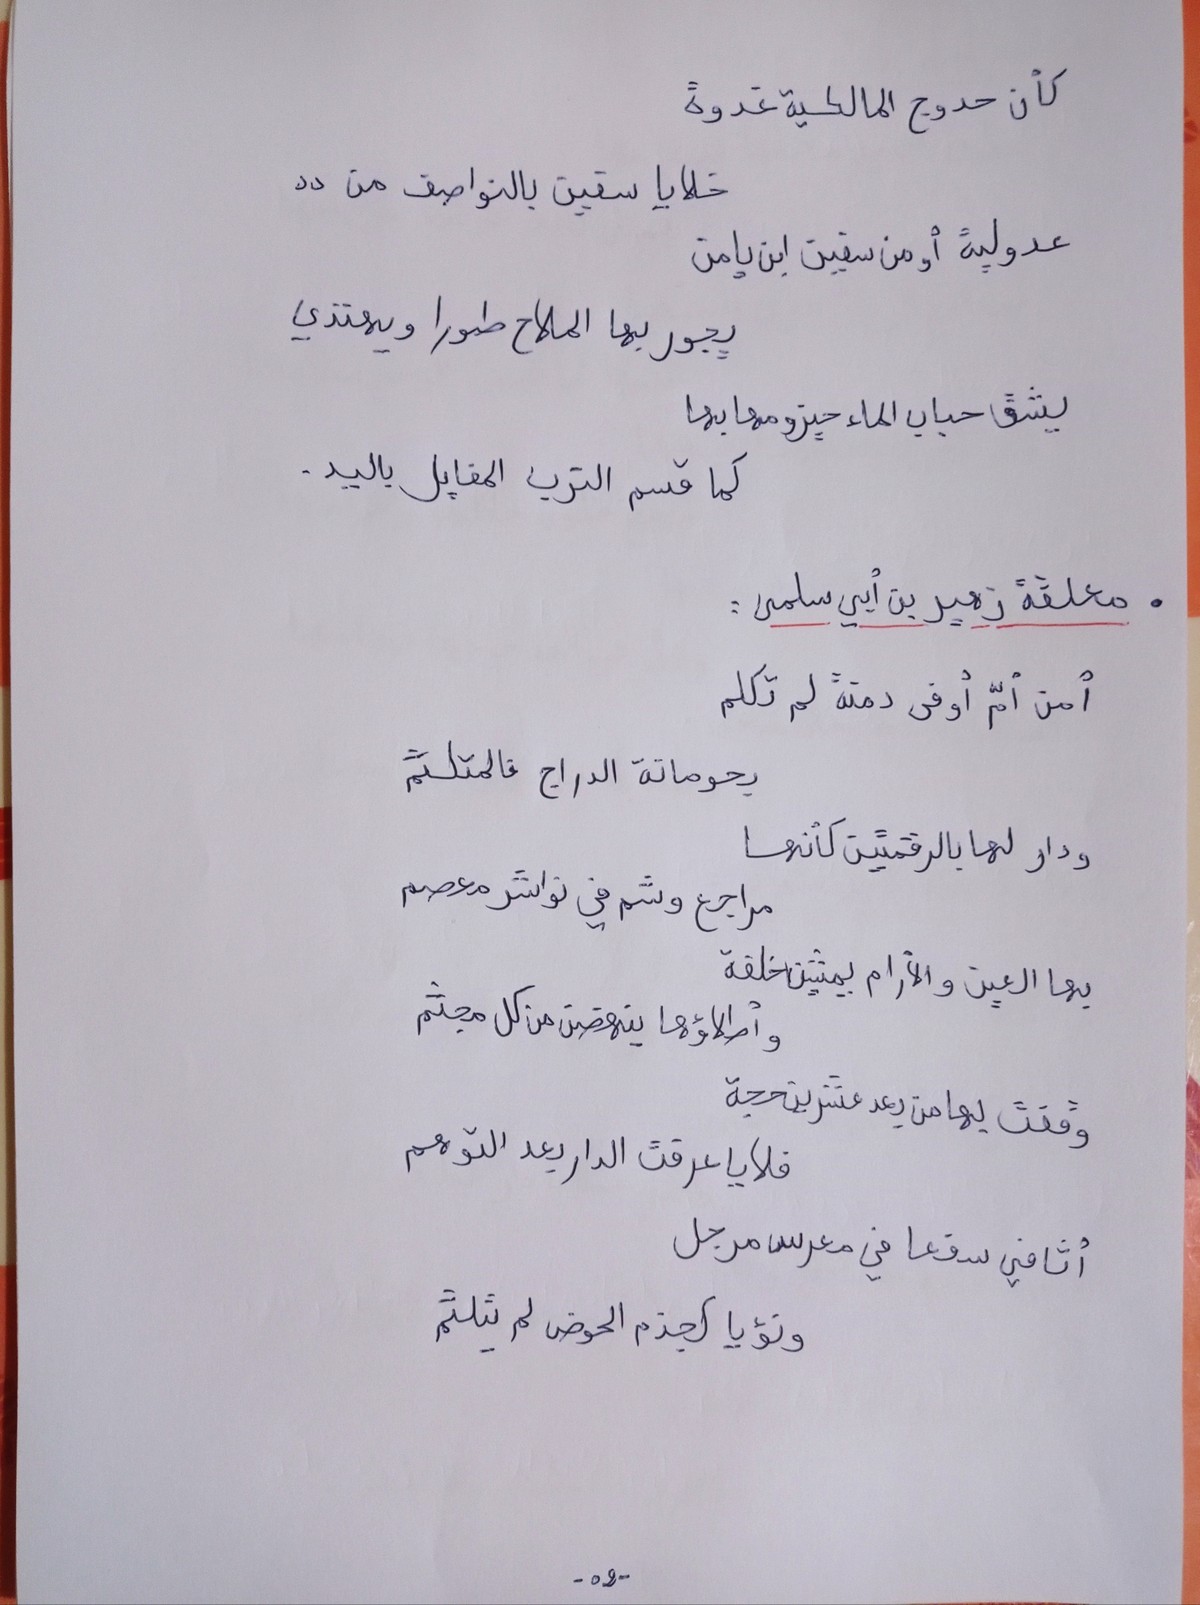 كأن حدوج المالكية غدوة
خلايا سفين بالنواصف من دد
عدولية أو من سفين ابن يامن
يجور بها الملاح طورا ويهتدي
يشق حباب الماء حيزومها بها
كما قسم الترب المفايل باليد.
• معلقة زهير بن أبي سلمى:
أمن أمّ أوفى دمنة لم تكلم
بحومانة الدراج فالمتثلم
ودار لها بالرقمتين كأنها
مراجع وشم في نواشر معصم
بها العين والأرام يمشين خلفة
وأطلاؤها ينهضن من كل مجثم
وقفت بها من بعد عشرين حجة
فلايا عرفت الدار بعد التوهم
أثافي سفعا في معرس مرجل
ونؤيا كجذم الحوض لم يتثلم
-02-